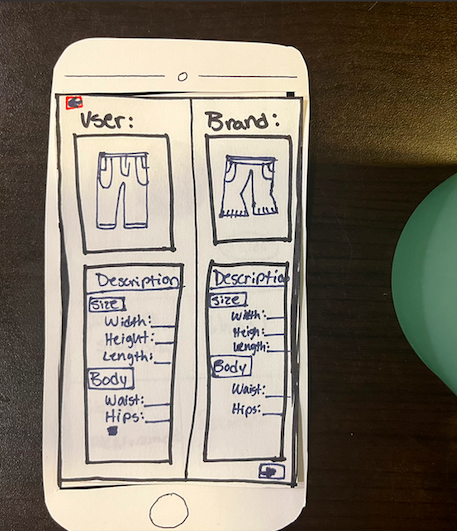 User:
Description
Size
Width:
Height:
Length:
Body
Waist:
Hips:
Brand:
Description
Size
Width:
Heigh:
Length:
Body
Waist:
Hips: